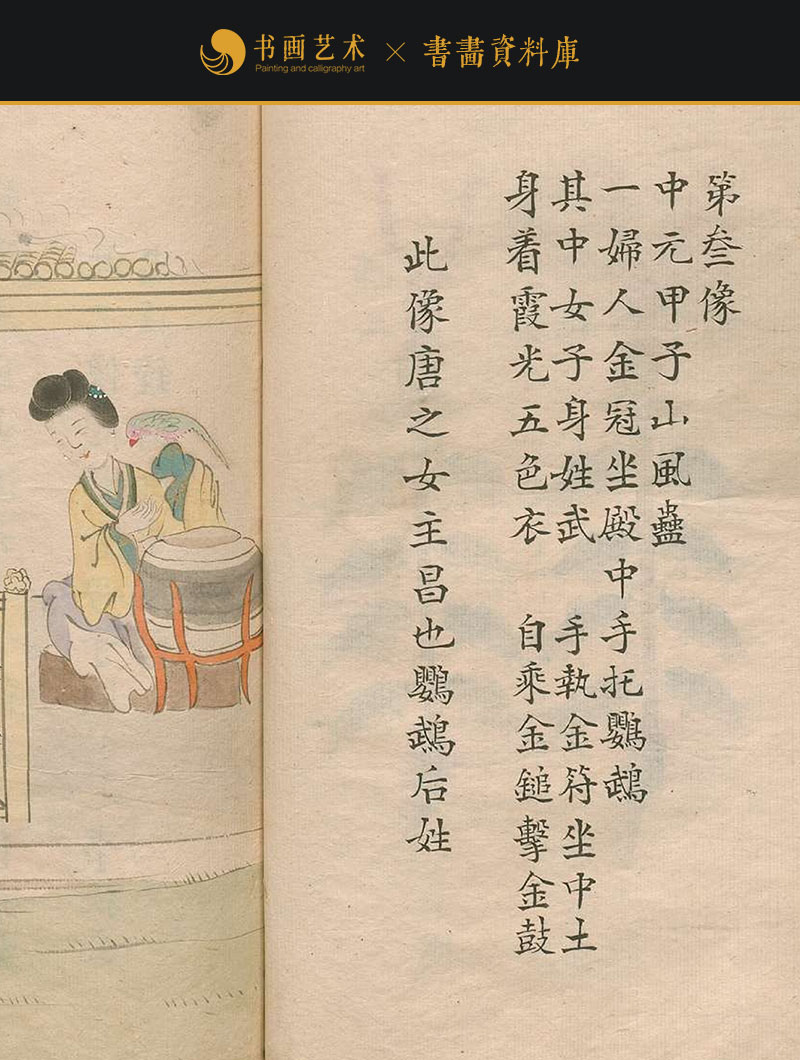 书画艺术
Painting and calligraphy art
×
書畫資料庫
第叁像
中元甲子山風蠱
一婦人金冠坐殿中手托鸚鵡
其中女子身姓武　手執金符坐中土
身着霞光五色衣　自乘金鎚擊金鼓
此像唐之女主昌也鸚鵡后姓